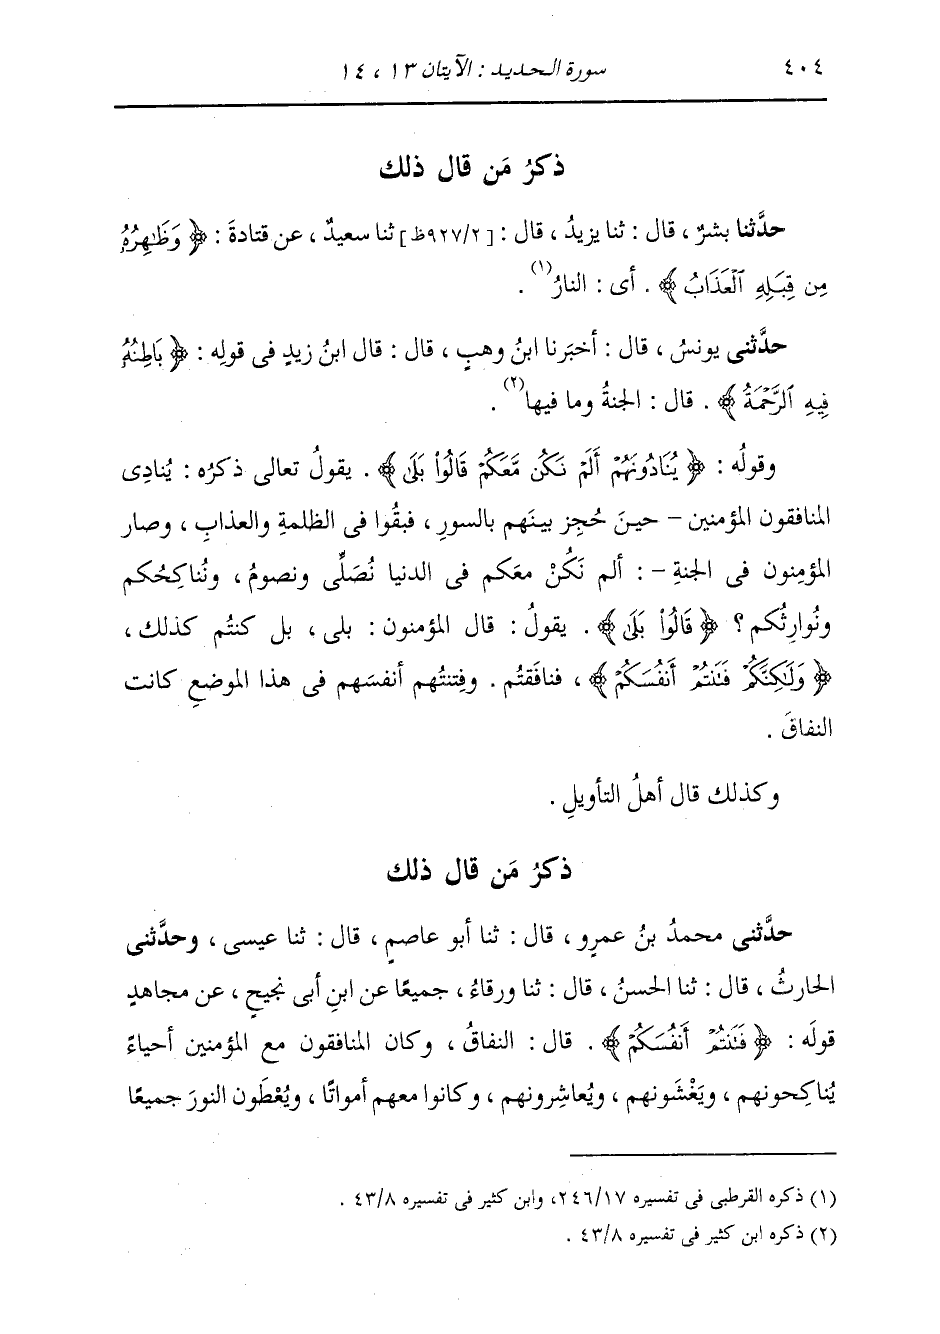 ٤٠٤ سورة الحديد : الآيتان ١٣ ، ١٤
ذكرُ مَن قال ذلك
حدَّثنا بشرٌ ، قال : ثنا يزيدُ ، قال : [٩٢٧/٢ظ] ثنا سعيدٌ ، عن قتادةَ : ﴿ وَظَٰهِرُهُۥ
مِن قِبَلِهِ ٱلْعَذَابُ ﴾ . أى : النارُ(١) .
حدَّثنى يونسُ ، قال : أخبَرنا ابنُ وهبٍ ، قال : قال ابنُ زيدٍ فى قولِه : ﴿ بَاطِنُهُۥ
فِيهِ ٱلرَّحْمَةُ ﴾ . قال : الجنةُ وما فيها(٢) .
وقولُه : ﴿ يُنَادُونَهُمْ أَلَمْ نَكُن مَّعَكُمْ قَالُوا۟ بَلَىٰ ﴾ . يقولُ تعالى ذكرُه : يُنادِى
المنافقون المؤمنين – حينَ حُجِز بينَهم بالسورِ ، فبقُوا فى الظلمةِ والعذابِ ، وصار
المؤمِنون فى الجنةِ – : ألم نَكُنْ معَكم فى الدنيا نُصَلِّى ونصومُ ، ونُناكِحُكم
ونُوارِثُكم ؟ ﴿ قَالُوا۟ بَلَىٰ ﴾ . يقولُ : قال المؤمنون : بلى ، بل كنتُم كذلك ،
﴿ وَلَٰكِنَّكُمْ فَتَنتُمْ أَنفُسَكُمْ ﴾ ، فنافَقتُم . وفِتنتُهم أنفسَهم فى هذا الموضعِ كانت
النفاقَ .
وكذلك قال أهلُ التأويلِ .
ذكرُ مَن قال ذلك
حدَّثنى محمدُ بنُ عمرٍو ، قال : ثنا أبو عاصمٍ ، قال : ثنا عيسى ، وحدَّثنى
الحارثُ ، قال : ثنا الحسنُ ، قال : ثنا ورقاءُ ، جميعًا عن ابنِ أبى نجيحٍ ، عن مجاهدٍ
قولَه : ﴿ فَتَنتُمْ أَنفُسَكُمْ ﴾ . قال : النفاقُ ، وكان المنافقون مع المؤمنين أحياءً
يُناكِحونهم ، ويَغْشَونهم ، ويُعاشِرونهم ، وكانوا معهم أمواتًا ، ويُعْطَون النورَ جميعًا
(١) ذكره القرطبى فى تفسيره ٢٤٦/١٧، وابن كثير فى تفسيره ٤٣/٨ .
(٢) ذكره ابن كثير فى تفسيره ٤٣/٨ .